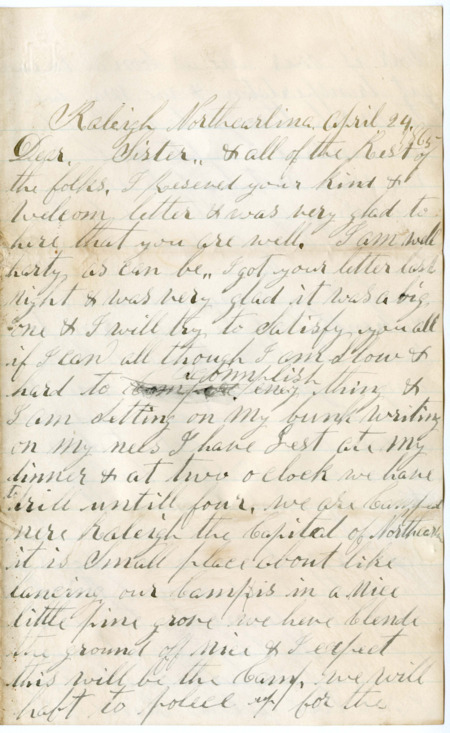 Raleigh Northcarlina April 24, 1865
Dear. Sister,, & all of the Rest of
the folks. I Reseved your kind &
Welcom letter & was very glad to
here that you are well. I am well
harty, as can be,, I got your letter last
Night & was very glad it was a big
one & I will try to satisfy you all
if I can all though I am slow &
hard to acomplish eney thing &
I am setting on my bunk writing
on my nees I have Jest ate my
dinner & at two oclock we have
to drill untill four. we are camped
nere Raleigh the Capital of Northcar
it is Small place about like
Lancing our Camp is in a Nice
little pine grove we have
the ground off Nice & I expect
this will be the Camp, we will
haft to police up for the